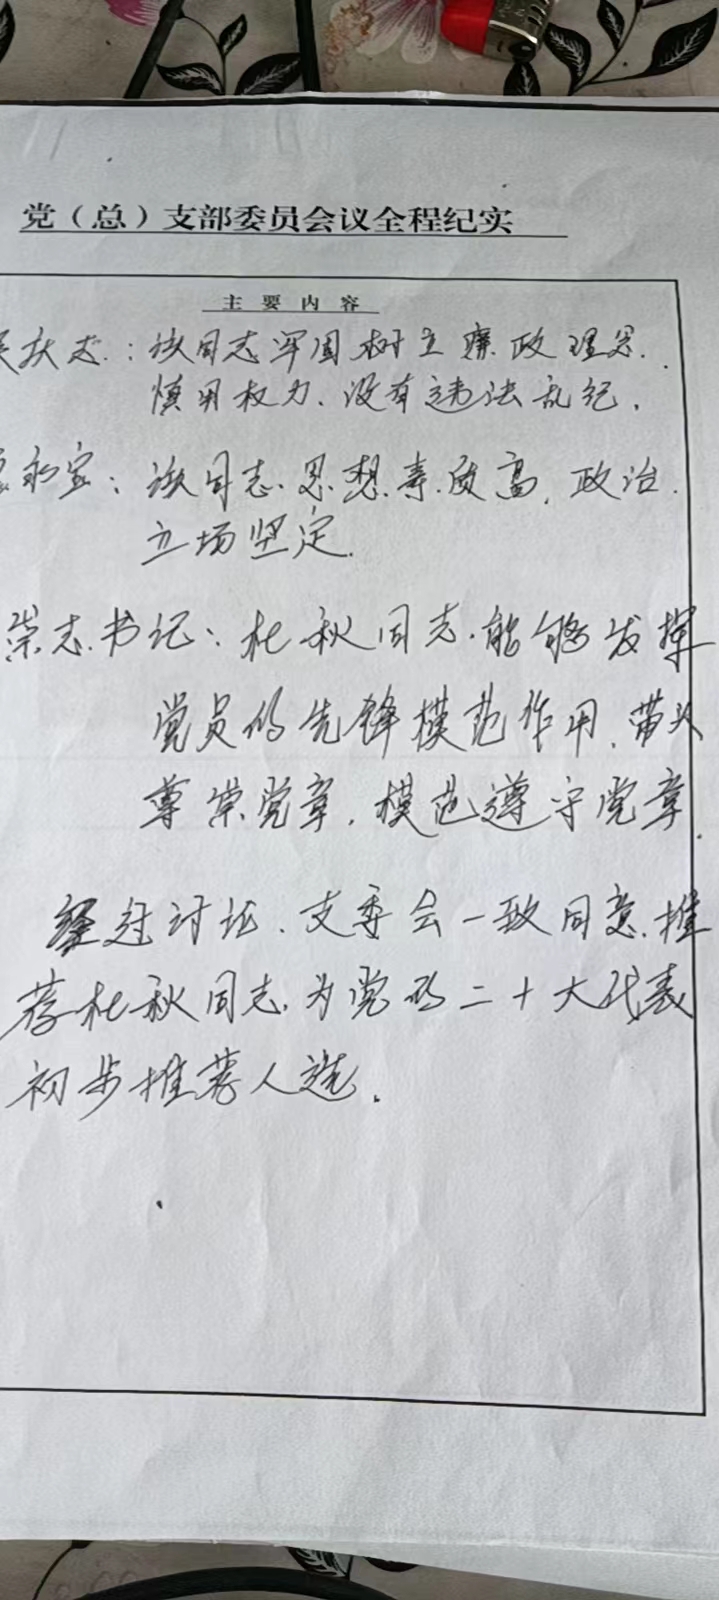 党（总）支部委员会议全程纪实
主要内容
扶志：该同志牢固树立廉政理念.
慎用权力、没有违法乱纪.
永宝：该同志思想素质高，政治
立场坚定.
崇志书记：杜秋同志能够发挥
党员的先锋模范作用，带头
尊崇党章，模范遵守党章
经过讨论、支委会一致同意推
荐杜秋同志为党的二十大代表
初步推荐人选.